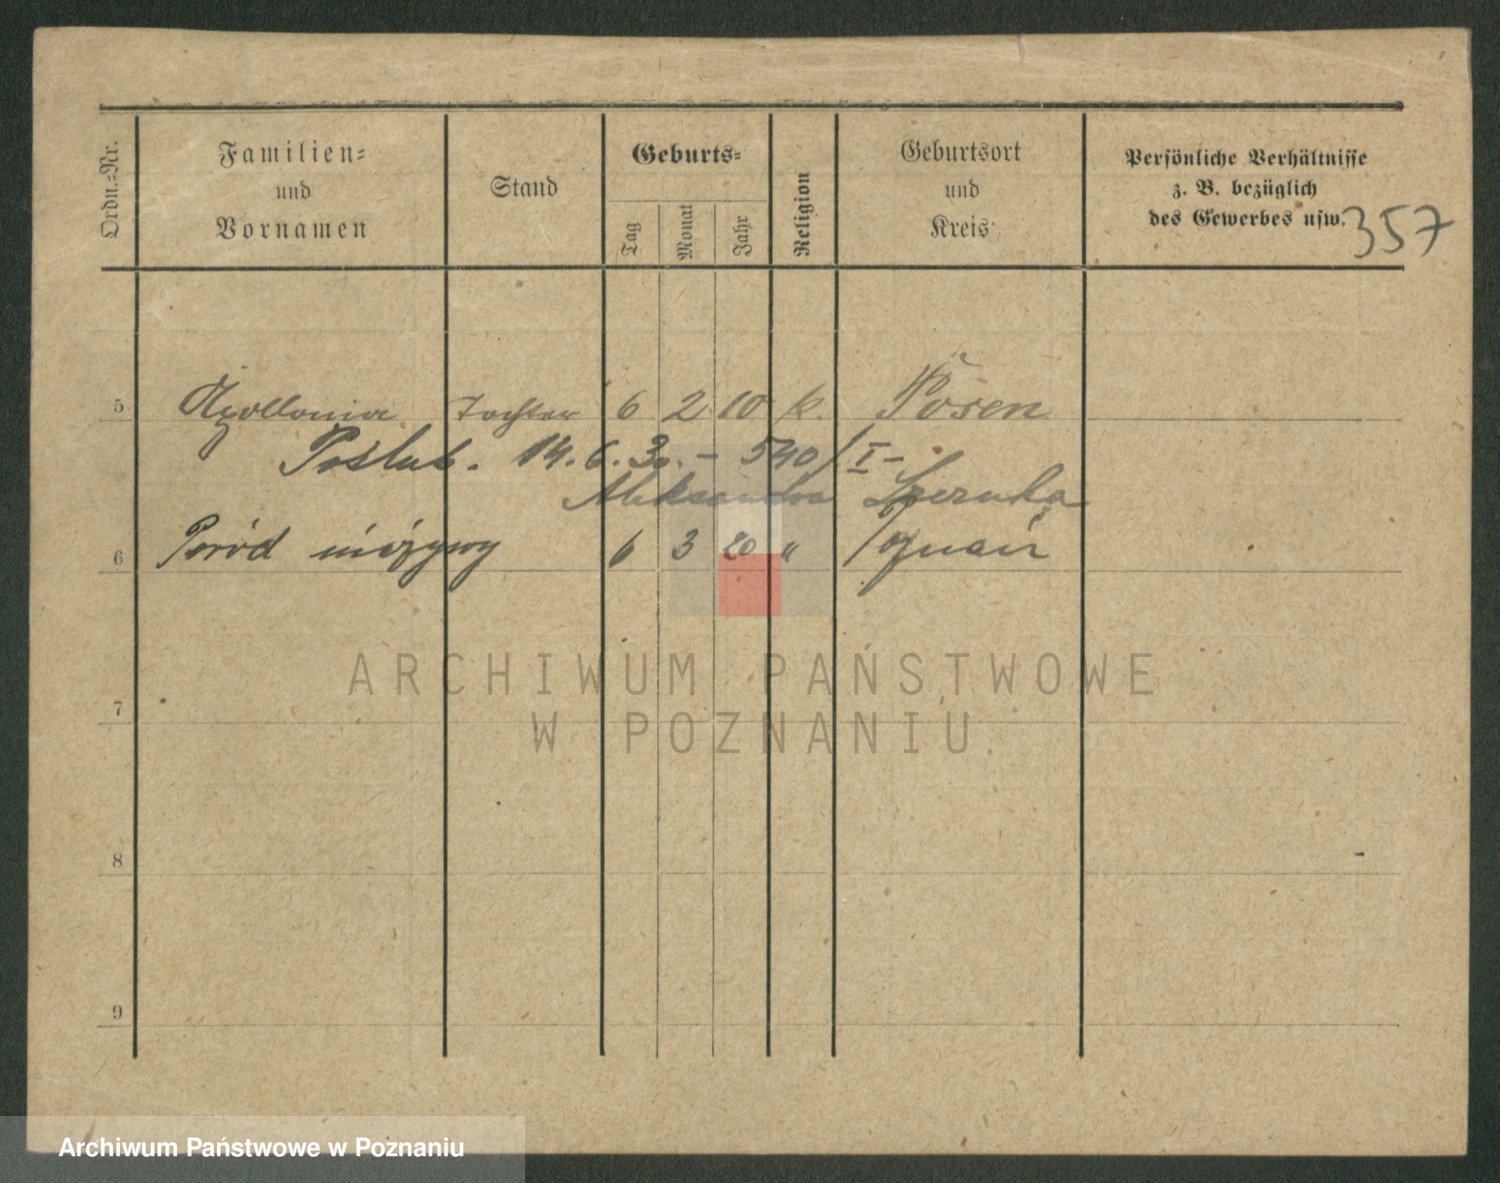 Ordn.-Nr.
Familien-
und
Vornamen
Stand
Geburts-
Tag
Monat
Jahr
Religion
Geburtsort
und
Kreis
Persönliche Verhältnisse
z. B. bezüglich
des Gewerbes usw.
357
5 Apollonia Tochter 6 2 10 k. Posen
Poślub. 14.6.30. - 540/I-
Aleksandra
6 Poród nieżywy 6 3 20 " Poznań
7
8
9
ARCHIWUM PAŃSTWOWE
W POZNANIU
Archiwum Państwowe w Poznaniu